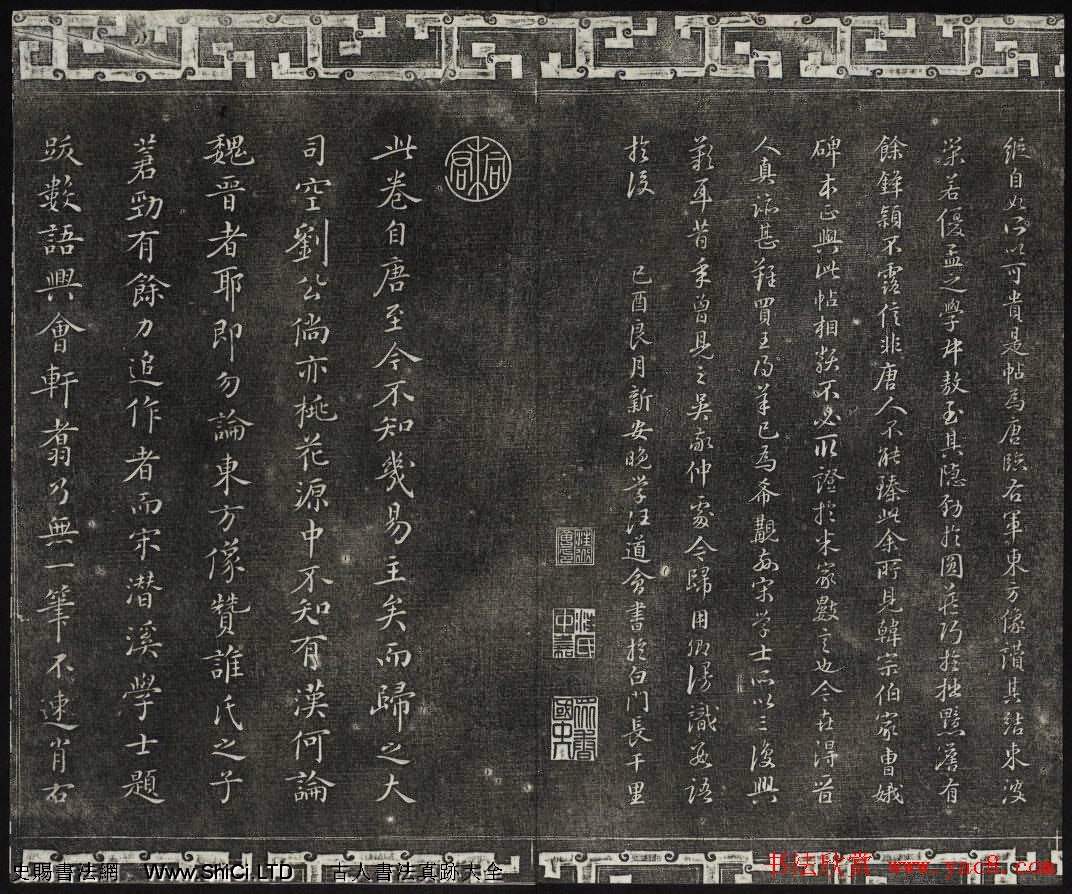 自如所以可貴是帖為唐臨右軍東方像讚其結束波
若優孟之學叔敖至其隱勁於圓藏巧於拙黯澹有
餘鋒穎不露信非唐人不能臻此余所見韓宗伯家曹娥
碑本正與此帖相類不必取證於米家數言也今在得省
人真跡甚難買王得羊已為希觀如宋學士所以三復興
歎耳昔年曾見之吳家仲處今歸用卿漫識數語
於後 己酉良月新安晚學汪道會書於白門長干里
此卷自唐至今不知幾易主矣而歸之大
司空劉公倘亦桃花源中不知有漢何論
魏晉者耶即勿論東方像贊誰氏之子
著勁有餘力追作者而宋潛溪學士題
跋數語興會軒翥乃無一筆不逮肖右
史賜書法網 Www.ShiCi.LTD 古人書法真跡大全
书法欣赏 www.yac8.com